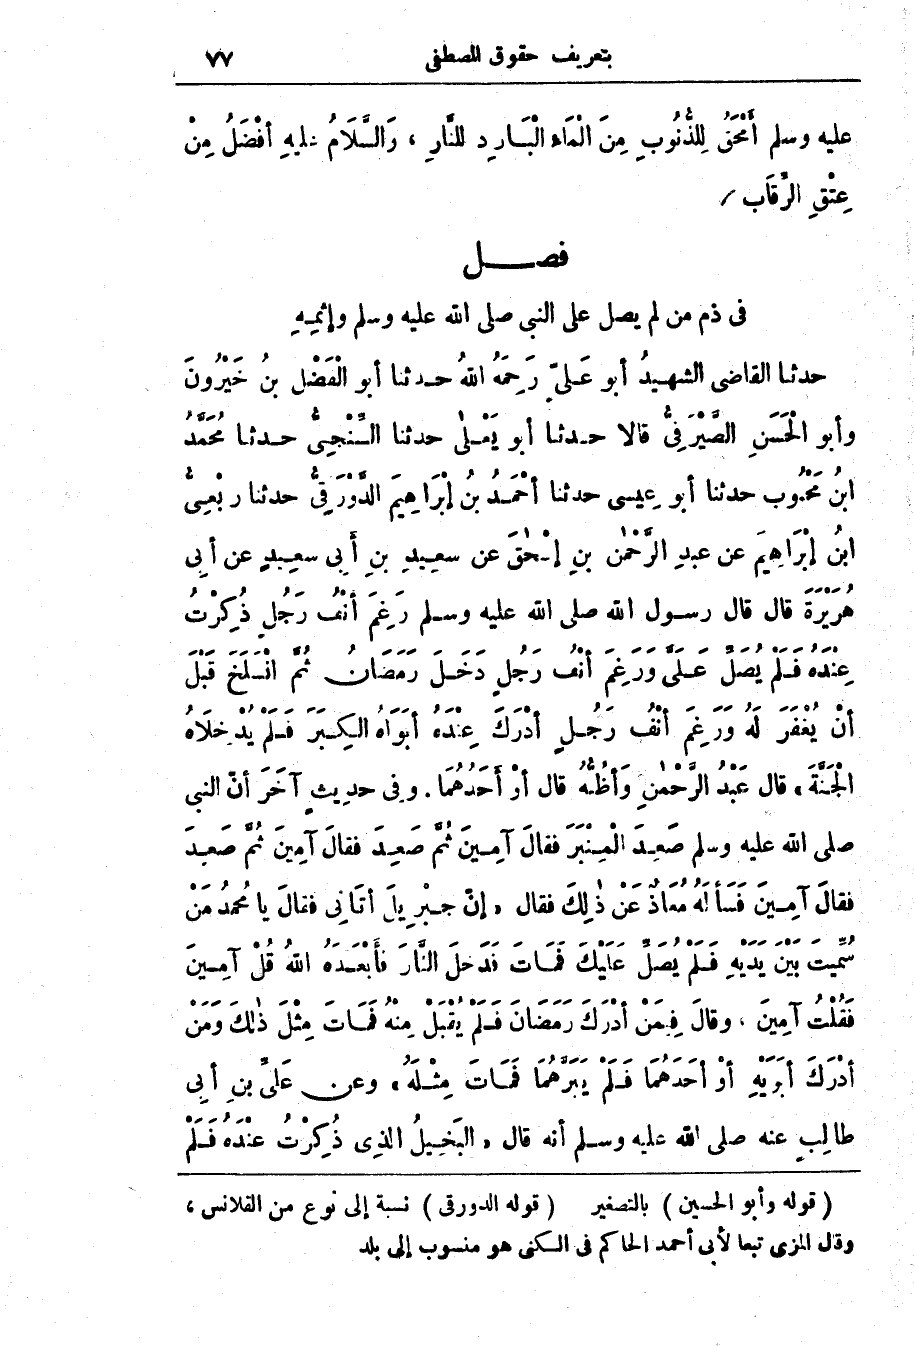 بتعريف حقوق المصطفى ٧٧
عليه وسلم أَمْحَقُ لِلذُّنُوبِ مِنَ الْمَاءِ الْبَارِدِ لِلنَّارِ ، وَالسَّلَامُ عليهِ أَفْضَلُ مِنْ
عِتْقِ الرِّقَابِ
فصل
فى ذم من لم يصل على النبى صلى الله عليه وسلم وإثمِهِ
حدثنا القاضى الشهيدُ أبو عَلىٍّ رَحِمَهُ اللهُ حدثنا أبو الْفَضْلِ بنُ خَيْرُونَ
وأبو الْحَسَنِ الصَّيْرَفِىُّ قالا حدثنا أبو يَعْلَى حدثنا السِّنْجِىُّ حدثنا مُحَمَّدُ
ابنُ مَحْبُوبٍ حدثنا أبو عِيسى حدثنا أَحْمَدُ بنُ إِبْرَاهِيمَ الدَّوْرَقِىُّ حدثنا رِبْعِىُّ
ابنُ إِبْرَاهِيمَ عن عبدِ الرَّحْمٰنِ بنِ إِسْحٰقَ عن سعيدِ بنِ أَبى سعِيدٍ عن أَبِى
هُرَيْرَةَ قال قال رسول الله صلى الله عليه وسلم رَغِمَ أَنْفُ رَجُلٍ ذُكِرْتُ
عِنْدَهُ فَلَمْ يُصَلِّ عَلَىَّ وَرَغِمَ أَنْفُ رَجُلٍ دَخَلَ رَمَضَانُ ثُمَّ انْسَلَخَ قَبْلَ
أَنْ يُغْفَرَ لَهُ وَرَغِمَ أَنْفُ رَجُلٍ أَدْرَكَ عِنْدَهُ أَبَوَاهُ الكِبَرَ فَلَمْ يُدْخِلَاهُ
الْجَنَّةَ ، قال عَبْدُ الرَّحْمٰنِ وَأَظُنُّهُ قال أوْ أَحَدُهُمَا . وفى حديثٍ آخَرَ أنّ النبى
صلى الله عليه وسلم صَعِدَ الْمِنْبَرَ فقالَ آمِينَ ثُمَّ صَعِدَ فقالَ آمِينَ ثُمَّ صَعِدَ
فقالَ آمِينَ فَسَأَلَهُ مُعَاذٌ عَنْ ذٰلِكَ فقال ، إنّ جبْرِيلَ أتَانِى فقالَ يا مُحمدُ مَنْ
سُمِّيتَ بَيْنَ يَدَيْهِ فَلَمْ يُصَلِّ عَلَيْكَ فَمَاتَ فَدَخَلَ النَّارَ فأَبْعَدَهُ اللهُ قُلْ آمِينَ
فَقُلْتُ آمِينَ ، وقالَ فِيمَنْ أَدْرَكَ رَمَضَانَ فَلَمْ يُقْبَلْ مِنْهُ فَمَاتَ مِثْلَ ذٰلِكَ وَمَنْ
أَدْرَكَ أَبَوَيْهِ أوْ أَحَدَهُمَا فَلَمْ يَبَرَّهُمَا فَمَاتَ مِثْلَهُ ، وعن عَلىِّ بنِ أَبى
طالِبٍ عنه صلى الله عليه وسلم أنه قال ، البَخِيلُ الذِى ذُكِرْتُ عنْدَهُ فَلَمْ
( قوله وأبو الحسين ) بالتصغير ( قوله الدورقى ) نسبة إلى نوع من القلانس ،
وقال المزى تبعا لأبى أحمد الحاكم فى الكنى هو منسوب إلى بلد